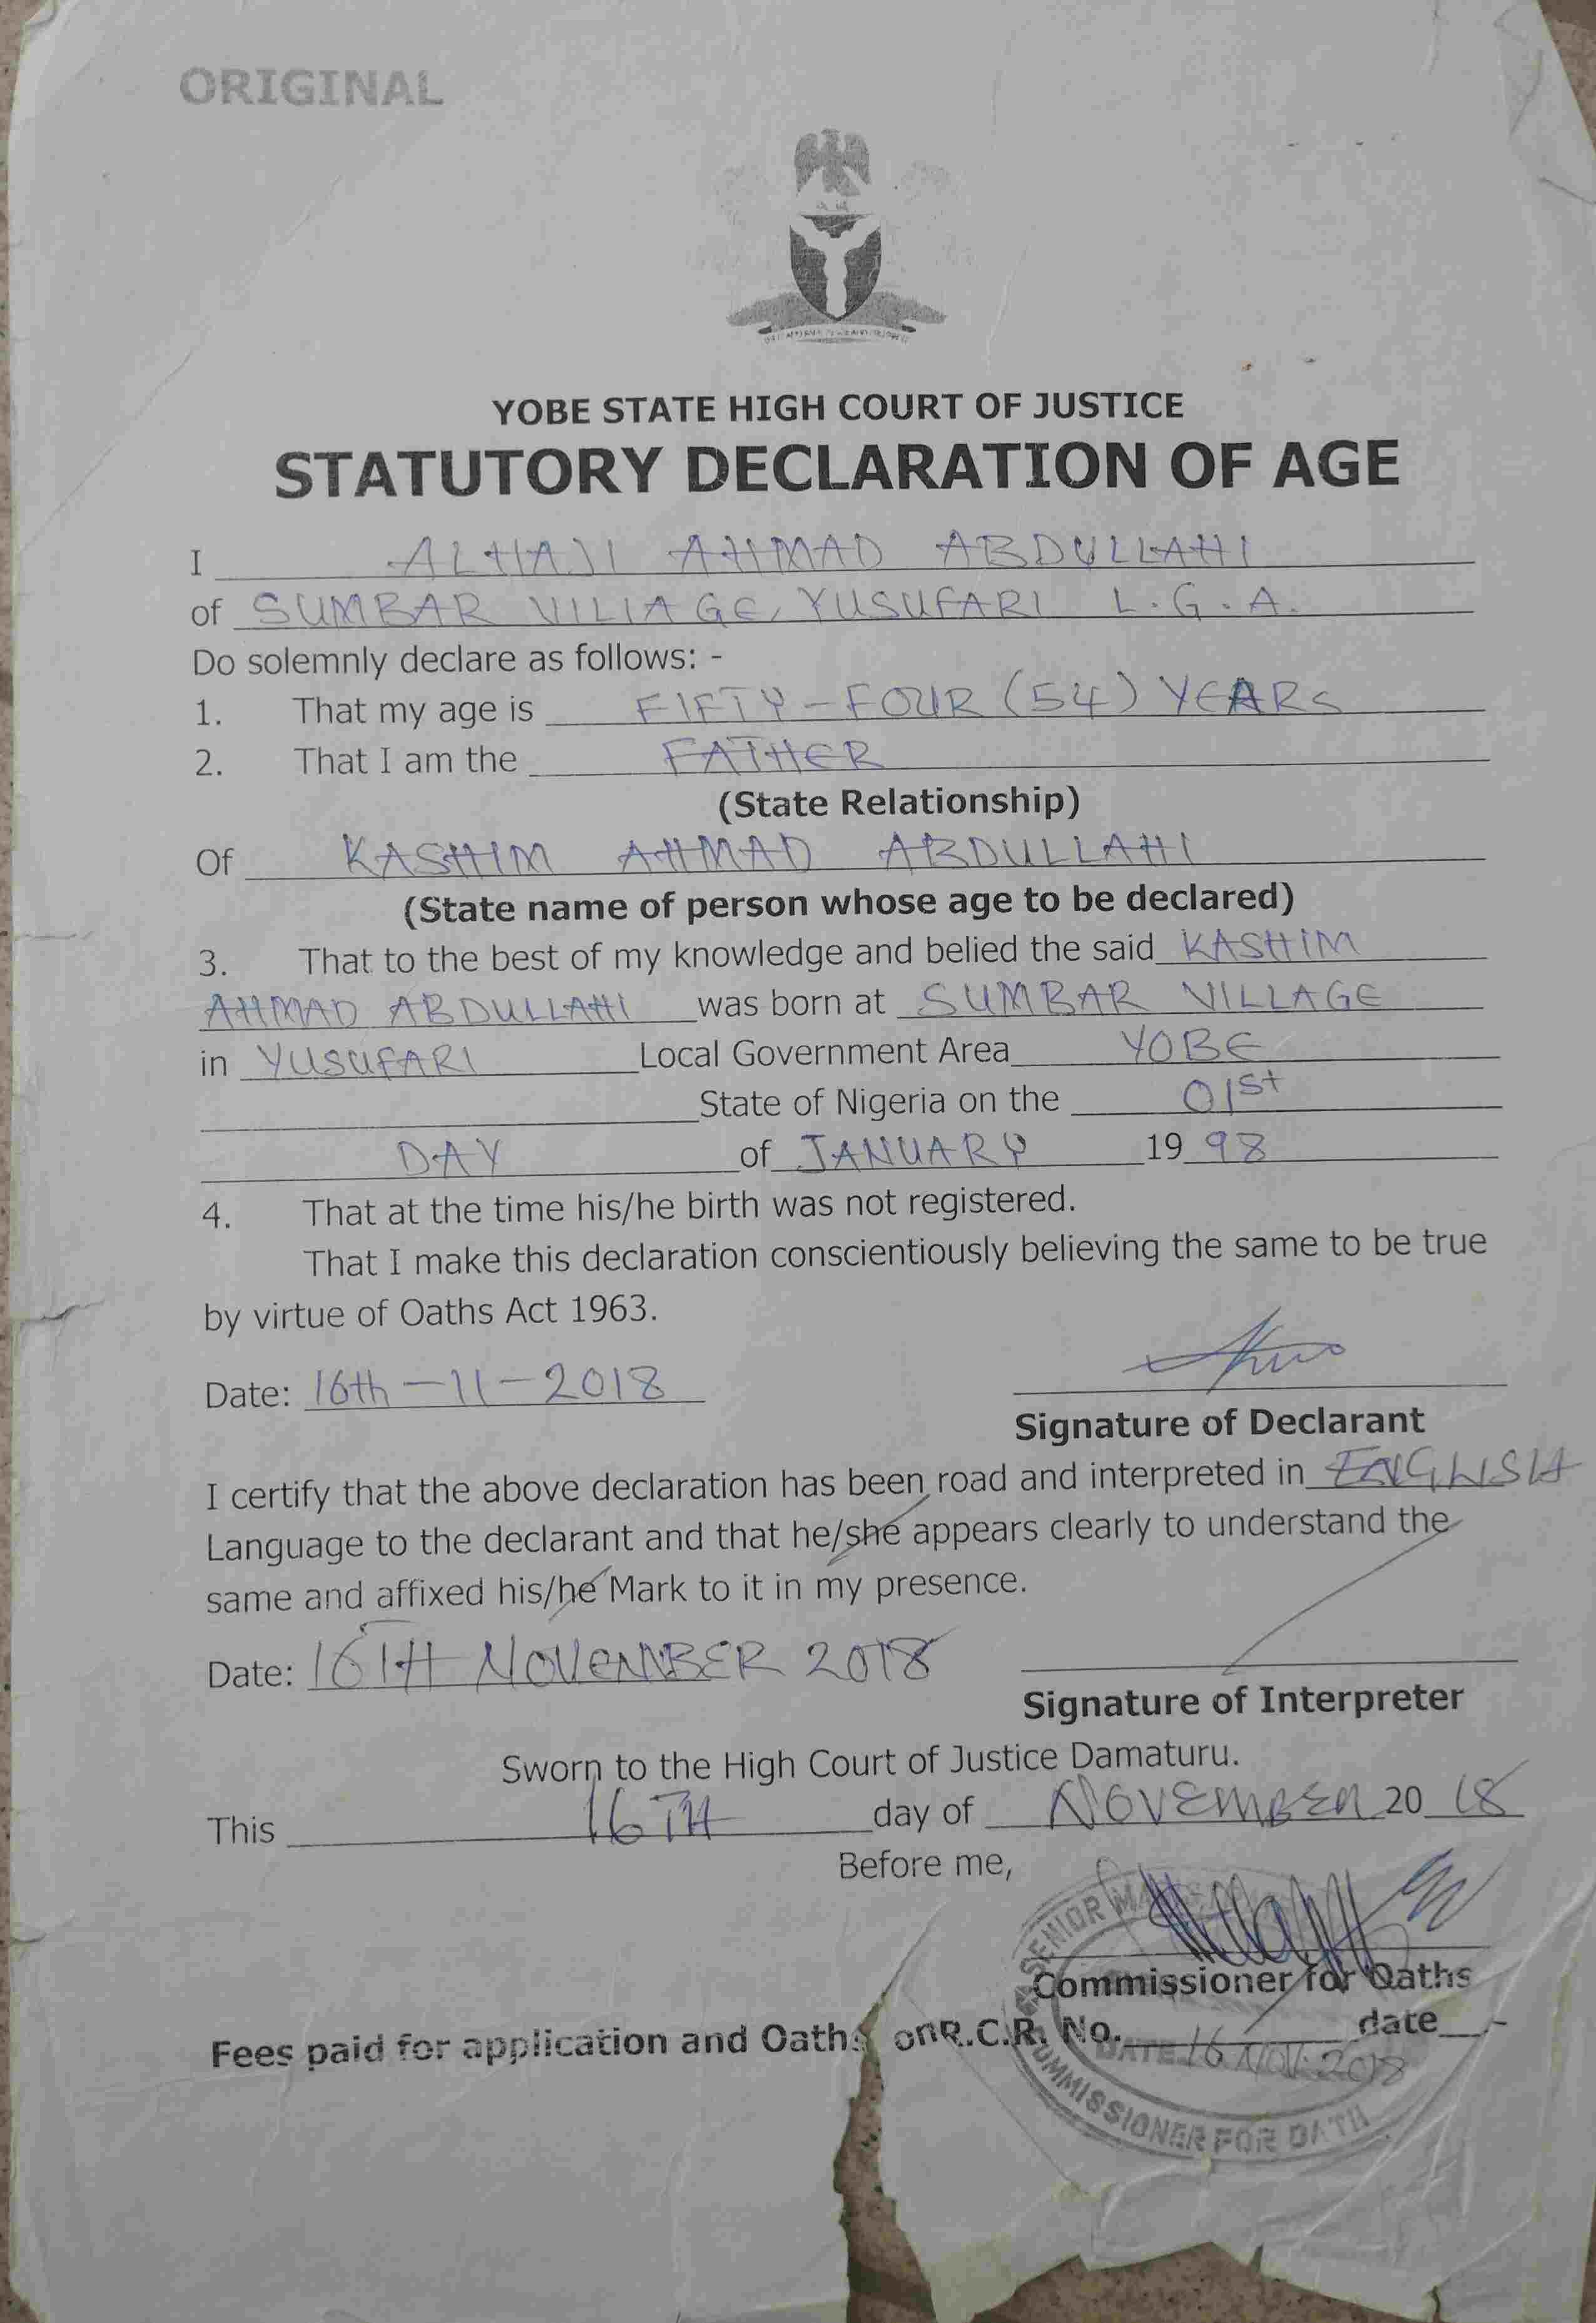 ORIGINAL
YOBE STATE HIGH COURT OF JUSTICE
STATUTORY DECLARATION OF AGE
I ALHAJI AHMAD ABDULLAHI
of SUMBAR VILLAGE, YUSUFARI L.G.A.
Do solemnly declare as follows: -
1. That my age is FIFTY-FOUR (54) YEARS
2. That I am the FATHER
(State Relationship)
Of KASHIM AHMAD ABDULLAHI
(State name of person whose age to be declared)
3. That to the best of my knowledge and belied the said KASHIM
AHMAD ABDULLAHI was born at SUMBAR VILLAGE
in YUSUFARI Local Government Area YOBE
State of Nigeria on the 01st
DAY of JANUARY 19 98
4. That at the time his/he birth was not registered.
That I make this declaration conscientiously believing the same to be true
by virtue of Oaths Act 1963.
Date: 16th-11-2018
Signature of Declarant
I certify that the above declaration has been road and interpreted in ENGLISH
Language to the declarant and that he/she appears clearly to understand the
same and affixed his/he Mark to it in my presence.
Date: 16TH NOVEMBER 2018
Signature of Interpreter
Sworn to the High Court of Justice Damaturu.
This 16TH day of NOVEMBER 20 18
Before me,
SENIOR
Commissioner for Oaths
Fees paid for application and Oaths on R.C.R. No. date
DATE 16 NOV. 2018
COMMISSIONER FOR OATH